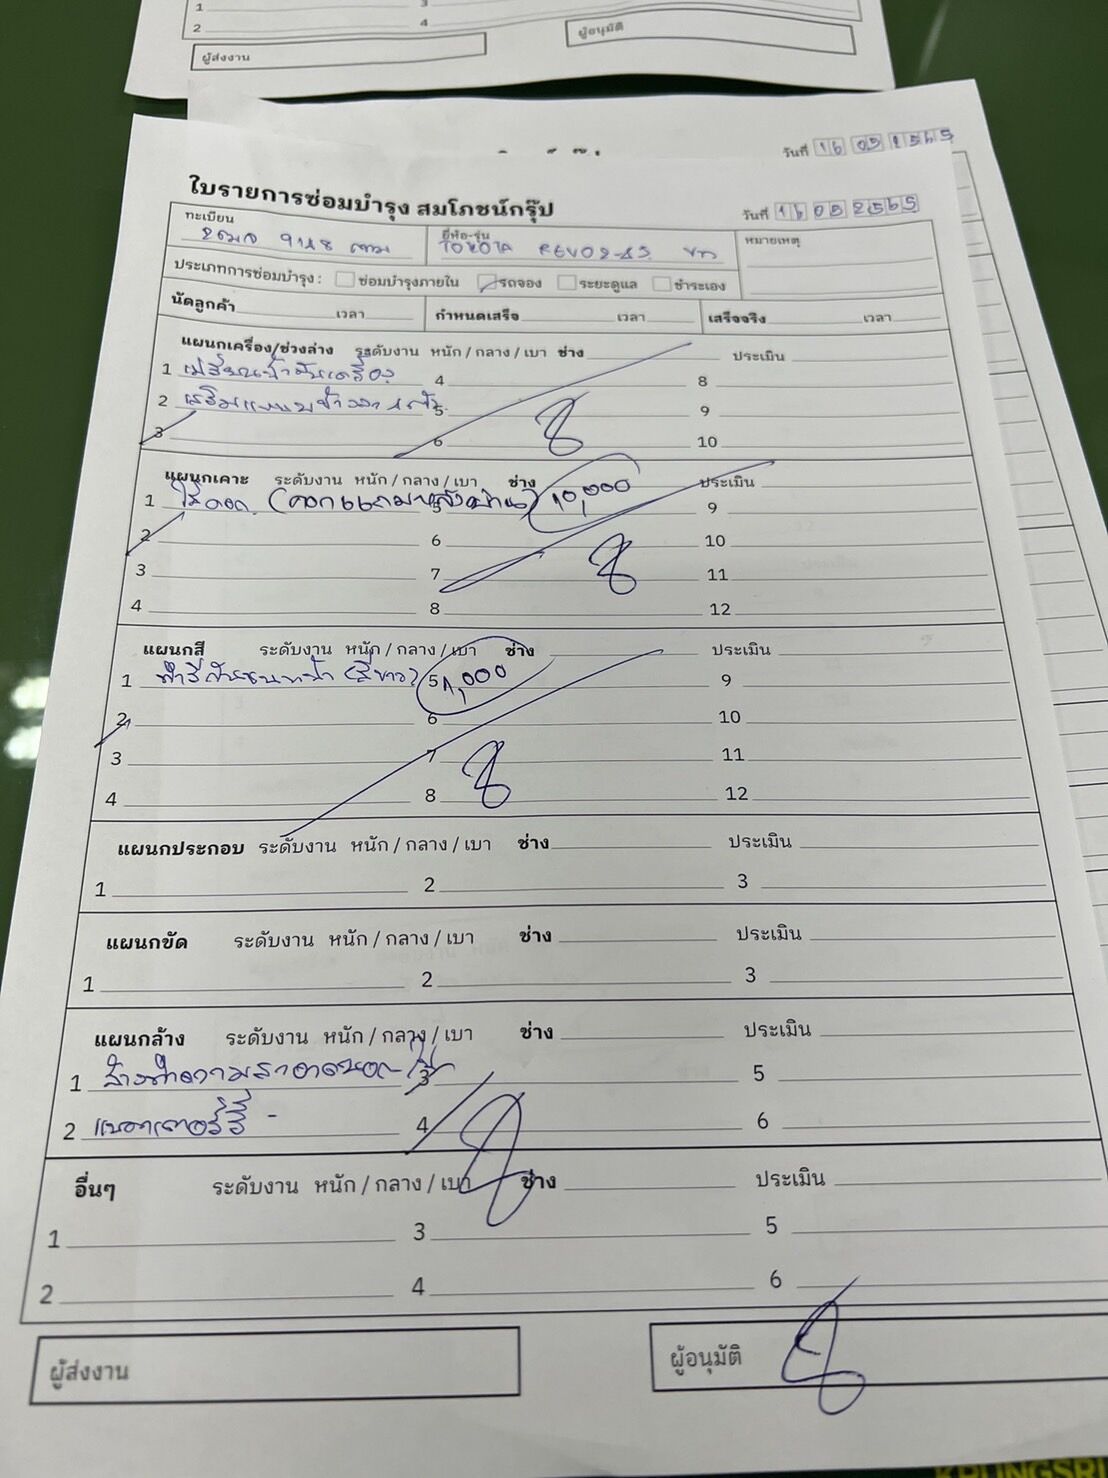 1
2 4
ผู้ส่งงาน ผู้อนุมัติ
วันที่ 16 05 2565
ใบรายการซ่อมบำรุง สมโภชน์กรุ๊ป
วันที่ 16 05 2565
ทะเบียน ยี่ห้อ-รุ่น หมายเหตุ
9118 กทม TOYOTA REVO
ประเภทการซ่อมบำรุง : ซ่อมบำรุงภายใน รถจอง ระยะดูแล ชำระเอง
นัดลูกค้า เวลา กำหนดเสร็จ เวลา เสร็จจริง เวลา
แผนกเครื่อง/ช่วงล่าง ระดับงาน หนัก / กลาง / เบา ช่าง ประเมิน
1 เปลี่ยนน้ำมันเครื่อง 4 8
2 เสริมแหนบ 5 9
3 6 10
แผนกเคาะ ระดับงาน หนัก / กลาง / เบา ช่าง ประเมิน
1 10,000 9
2 6 10
3 7 11
4 8 12
แผนกสี ระดับงาน หนัก / กลาง / เบา ช่าง ประเมิน
1 ทำสีกันชนหน้า (สีขาว) 5 1,000 9
2 6 10
3 7 11
4 8 12
แผนกประกอบ ระดับงาน หนัก / กลาง / เบา ช่าง ประเมิน
1 2 3
แผนกขัด ระดับงาน หนัก / กลาง / เบา ช่าง ประเมิน
1 2 3
แผนกล้าง ระดับงาน หนัก / กลาง / เบา ช่าง ประเมิน
1 ล้างทำความสะอาด 3 5
2 แบตเตอรี่ 4 6
อื่นๆ ระดับงาน หนัก / กลาง / เบา ช่าง ประเมิน
1 3 5
2 4 6
ผู้ส่งงาน ผู้อนุมัติ
KRUNGSRI